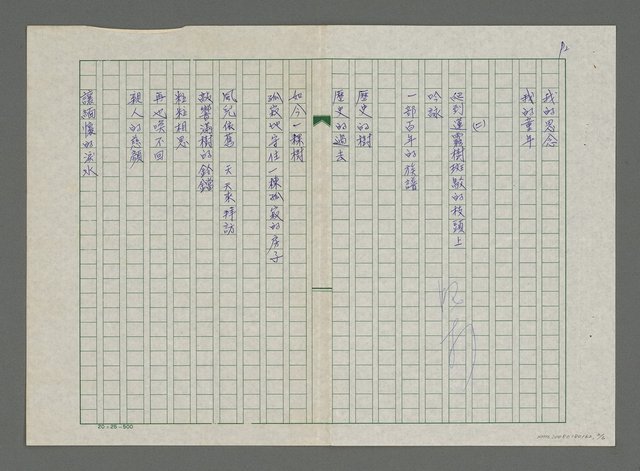 P2
我的思念
我的童年
(二)
爬到蓮霧樹斑駁的枝頭上
吟詠
一部百年的族譜
歷史的樹
歷史的過去
如今一棵樹
孤寂地守住一棟孤寂的房子
風兒依舊 天天來拜訪
敲響滿樹的鈴鐺
粒粒相思
再也喚不回
親人的慈顏
讓緬懷的淚水
20×25=500